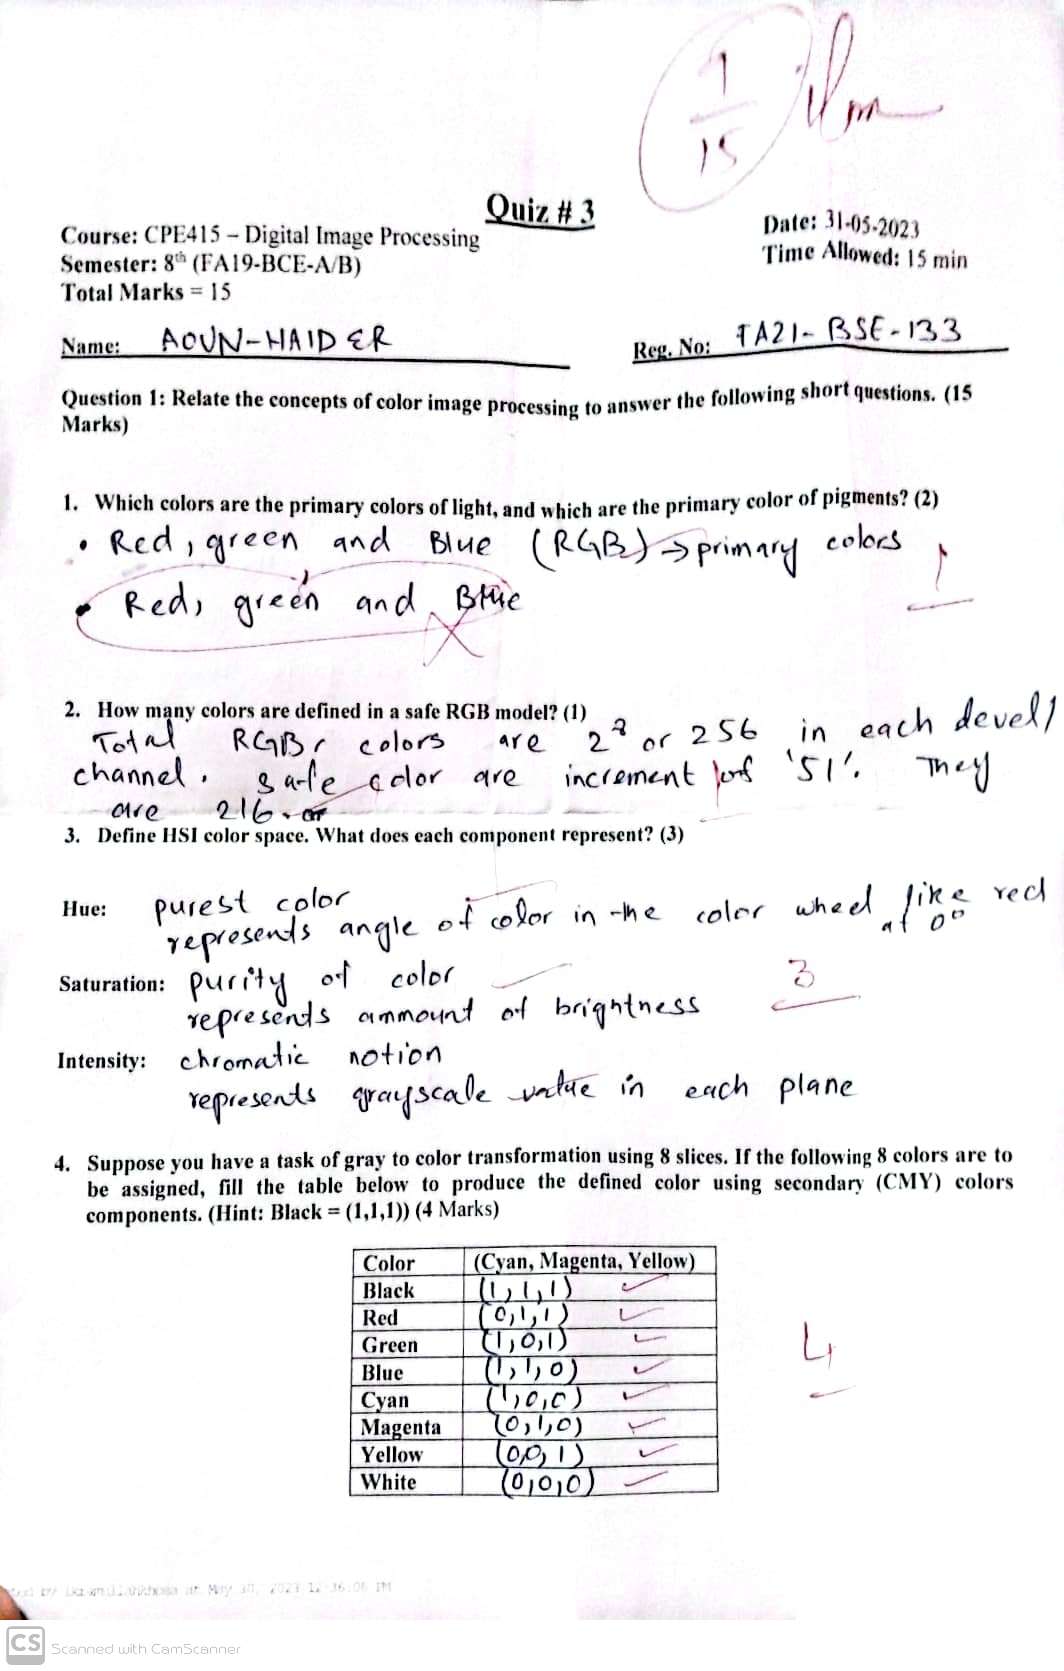 1
15
Quiz # 3
Course: CPE415 – Digital Image Processing
Date: 31-05-2023
Semester: 8th (FA19-BCE-A/B)
Time Allowed: 15 min
Total Marks = 15
Name: AOUN-HAIDER
Reg. No: FA21-BSE-133
Question 1: Relate the concepts of color image processing to answer the following short questions. (15
Marks)
1. Which colors are the primary colors of light, and which are the primary color of pigments? (2)
• Red, green and Blue (RGB) → primary colors
1
• Red, green and Blue
2. How many colors are defined in a safe RGB model? (1)
Total RGB colors are 2⁸ or 256 in each
channel. Safe color are increment of '51'. They
are 216.
3. Define HSI color space. What does each component represent? (3)
Hue: purest color
represents angle of color in the color wheel like red at 0°
Saturation: purity of color
3
represents ammount of brightness
Intensity: chromatic notion
represents grayscale value in each plane
4. Suppose you have a task of gray to color transformation using 8 slices. If the following 8 colors are to
be assigned, fill the table below to produce the defined color using secondary (CMY) colors
components. (Hint: Black = (1,1,1)) (4 Marks)
Color (Cyan, Magenta, Yellow)
Black (1,1,1)
Red (0,1,1)
Green (1,0,1)
4
Blue (1,1,0)
Cyan (1,0,0)
Magenta (0,1,0)
Yellow (0,0,1)
White (0,0,0)
CS Scanned with CamScanner